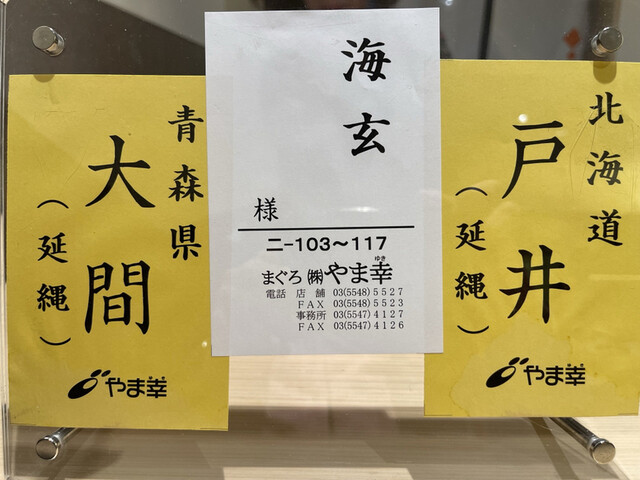 北海道
戸井
（延縄）
やま幸
海玄
様
二-103～117
まぐろ ㈱やま幸
ゆき
電話 店舗 03(5548)5527
FAX 03(5548)5523
事務所 03(5547)4127
FAX 03(5547)4126
青森県
大間
（延縄）
やま幸